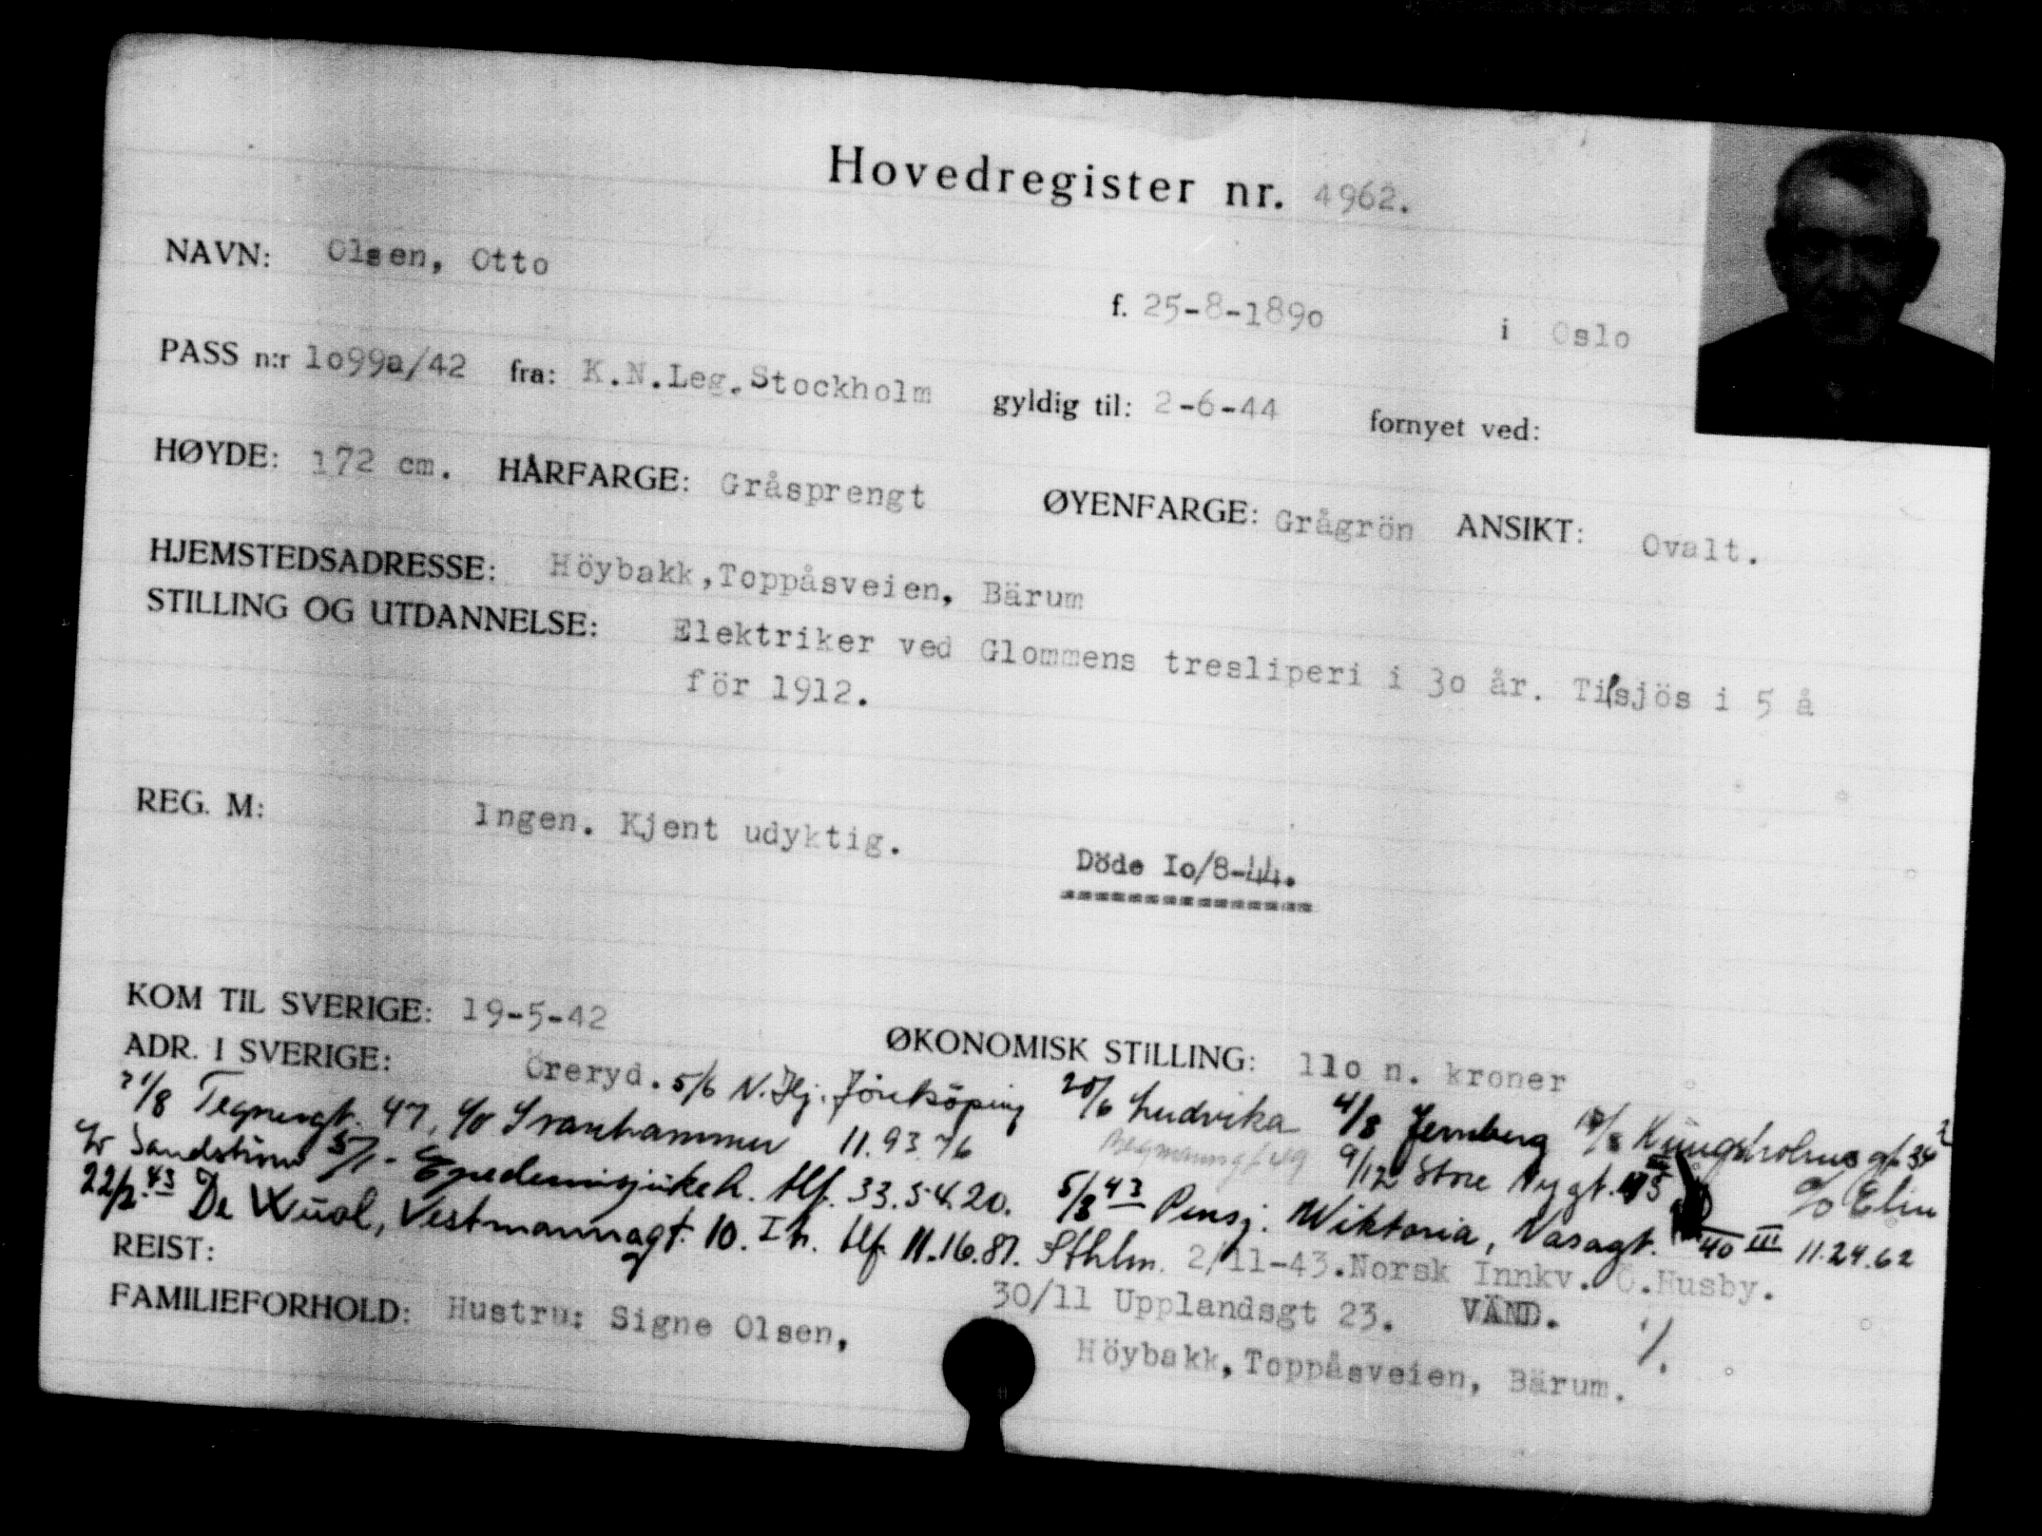 Hovedregister nr. 4962.
NAVN: Olsen, Otto
f. 25-8-1890 i Oslo
PASS n:r 1o99a/42 fra: K.N.Leg.Stockholm gyldig til: 2-6-44 fornyet ved:
HØYDE: 172 cm. HÅRFARGE: Gråsprengt ØYENFARGE: Grågrön ANSIKT: Ovalt.
HJEMSTEDSADRESSE: Höybakk,Toppåsveien, Bärum
STILLING OG UTDANNELSE: Elektriker ved Glommens tresliperi i 3o år. Tilsjös i 5 å
för 1912.
REG. M: Ingen. Kjent udyktig.
Döde Io/8-44.
KOM TIL SVERIGE: 19-5-42
ØKONOMISK STILLING: 11o n. kroner
ADR. I SVERIGE: Öreryd. 5/6 N.Hj. Jönköping 20/6 Ludvika 4/8 Jernberg Kungsholmsgt 34
21/8 Tegnergt. 47, c/o Svanhammer 11.93.76 9/12 Store Nygt. c/o Elin
Sandström 5/1 - Epedemisjukeh. tlf. 33.54.20. 5/8 43 Pensj. Wiktoria, Vasagt. 40 III 11.24.62
22/2.43 De Wual, Vestmannagt. 10. I h. tlf 11.16.87. Sthlm. 2/11-43.Norsk Innkv. Ö.Husby.
REIST: 30/11 Upplandsgt 23. VÄND.
FAMILIEFORHOLD: Hustru: Signe Olsen,
Höybakk,Toppåsveien, Bärum.